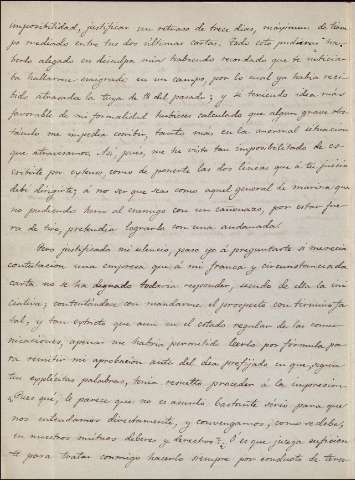 imposibilidad, justificar un retraso de trece dias, máximum de tiem-
po mediado entre tus dos últimas cartas. Todo esto pudiera ha-
berlo alegado en disculpa mia habiendo recordado que te noticia-
ba hallarme emigrado en un campo, por lo cual ya habia reci-
bido atrasada la tuya de 18 del pasado; y si teniendo idea más
favorable de mi formalidad hubieses calculado que algun grave obs-
táculo me impedia escribir, tanto más en la anormal situacion
que atravesamos. Así, pues, me he visto tan imposibilitado de es-
cribirte por extenso, como de ponerte las dos líneas que á tu juicio
debí dirigirte; á no ser que seas como aquel general de marina que
no pudiendo herir al enemigo con un cañonazo, por estar fue-
ra de tiro, pretendia lograrlo con una andanada.
Pero justificado mi silencio, paso yo á preguntarte si merecia
contestacion una empresa que á mi franca y circunstanciada
carta no se ha dignado todavia responder, siendo de ella la ini-
ciativa; contentándose con mandarme el prospecto con término fa-
tal, y tan estricto que aun en el estado regular de las comu-
nicaciones, apenas me habria permitido leerlo por fórmula pa-
ra remitir mi aprobacion antes del dia prefijado en que, segun
tus explícitas palabras, tenia resuelto proceder á la impresion.
¿Pues qué, le parece que no es asunto bastante sério para que
nos entendamos directamente, y convengamos, como se debe,
en nuestros mútuos deberes y derechos? ¿O es que juzga suficien-
te para tratar conmigo hacerlo siempre por conducto de terce-